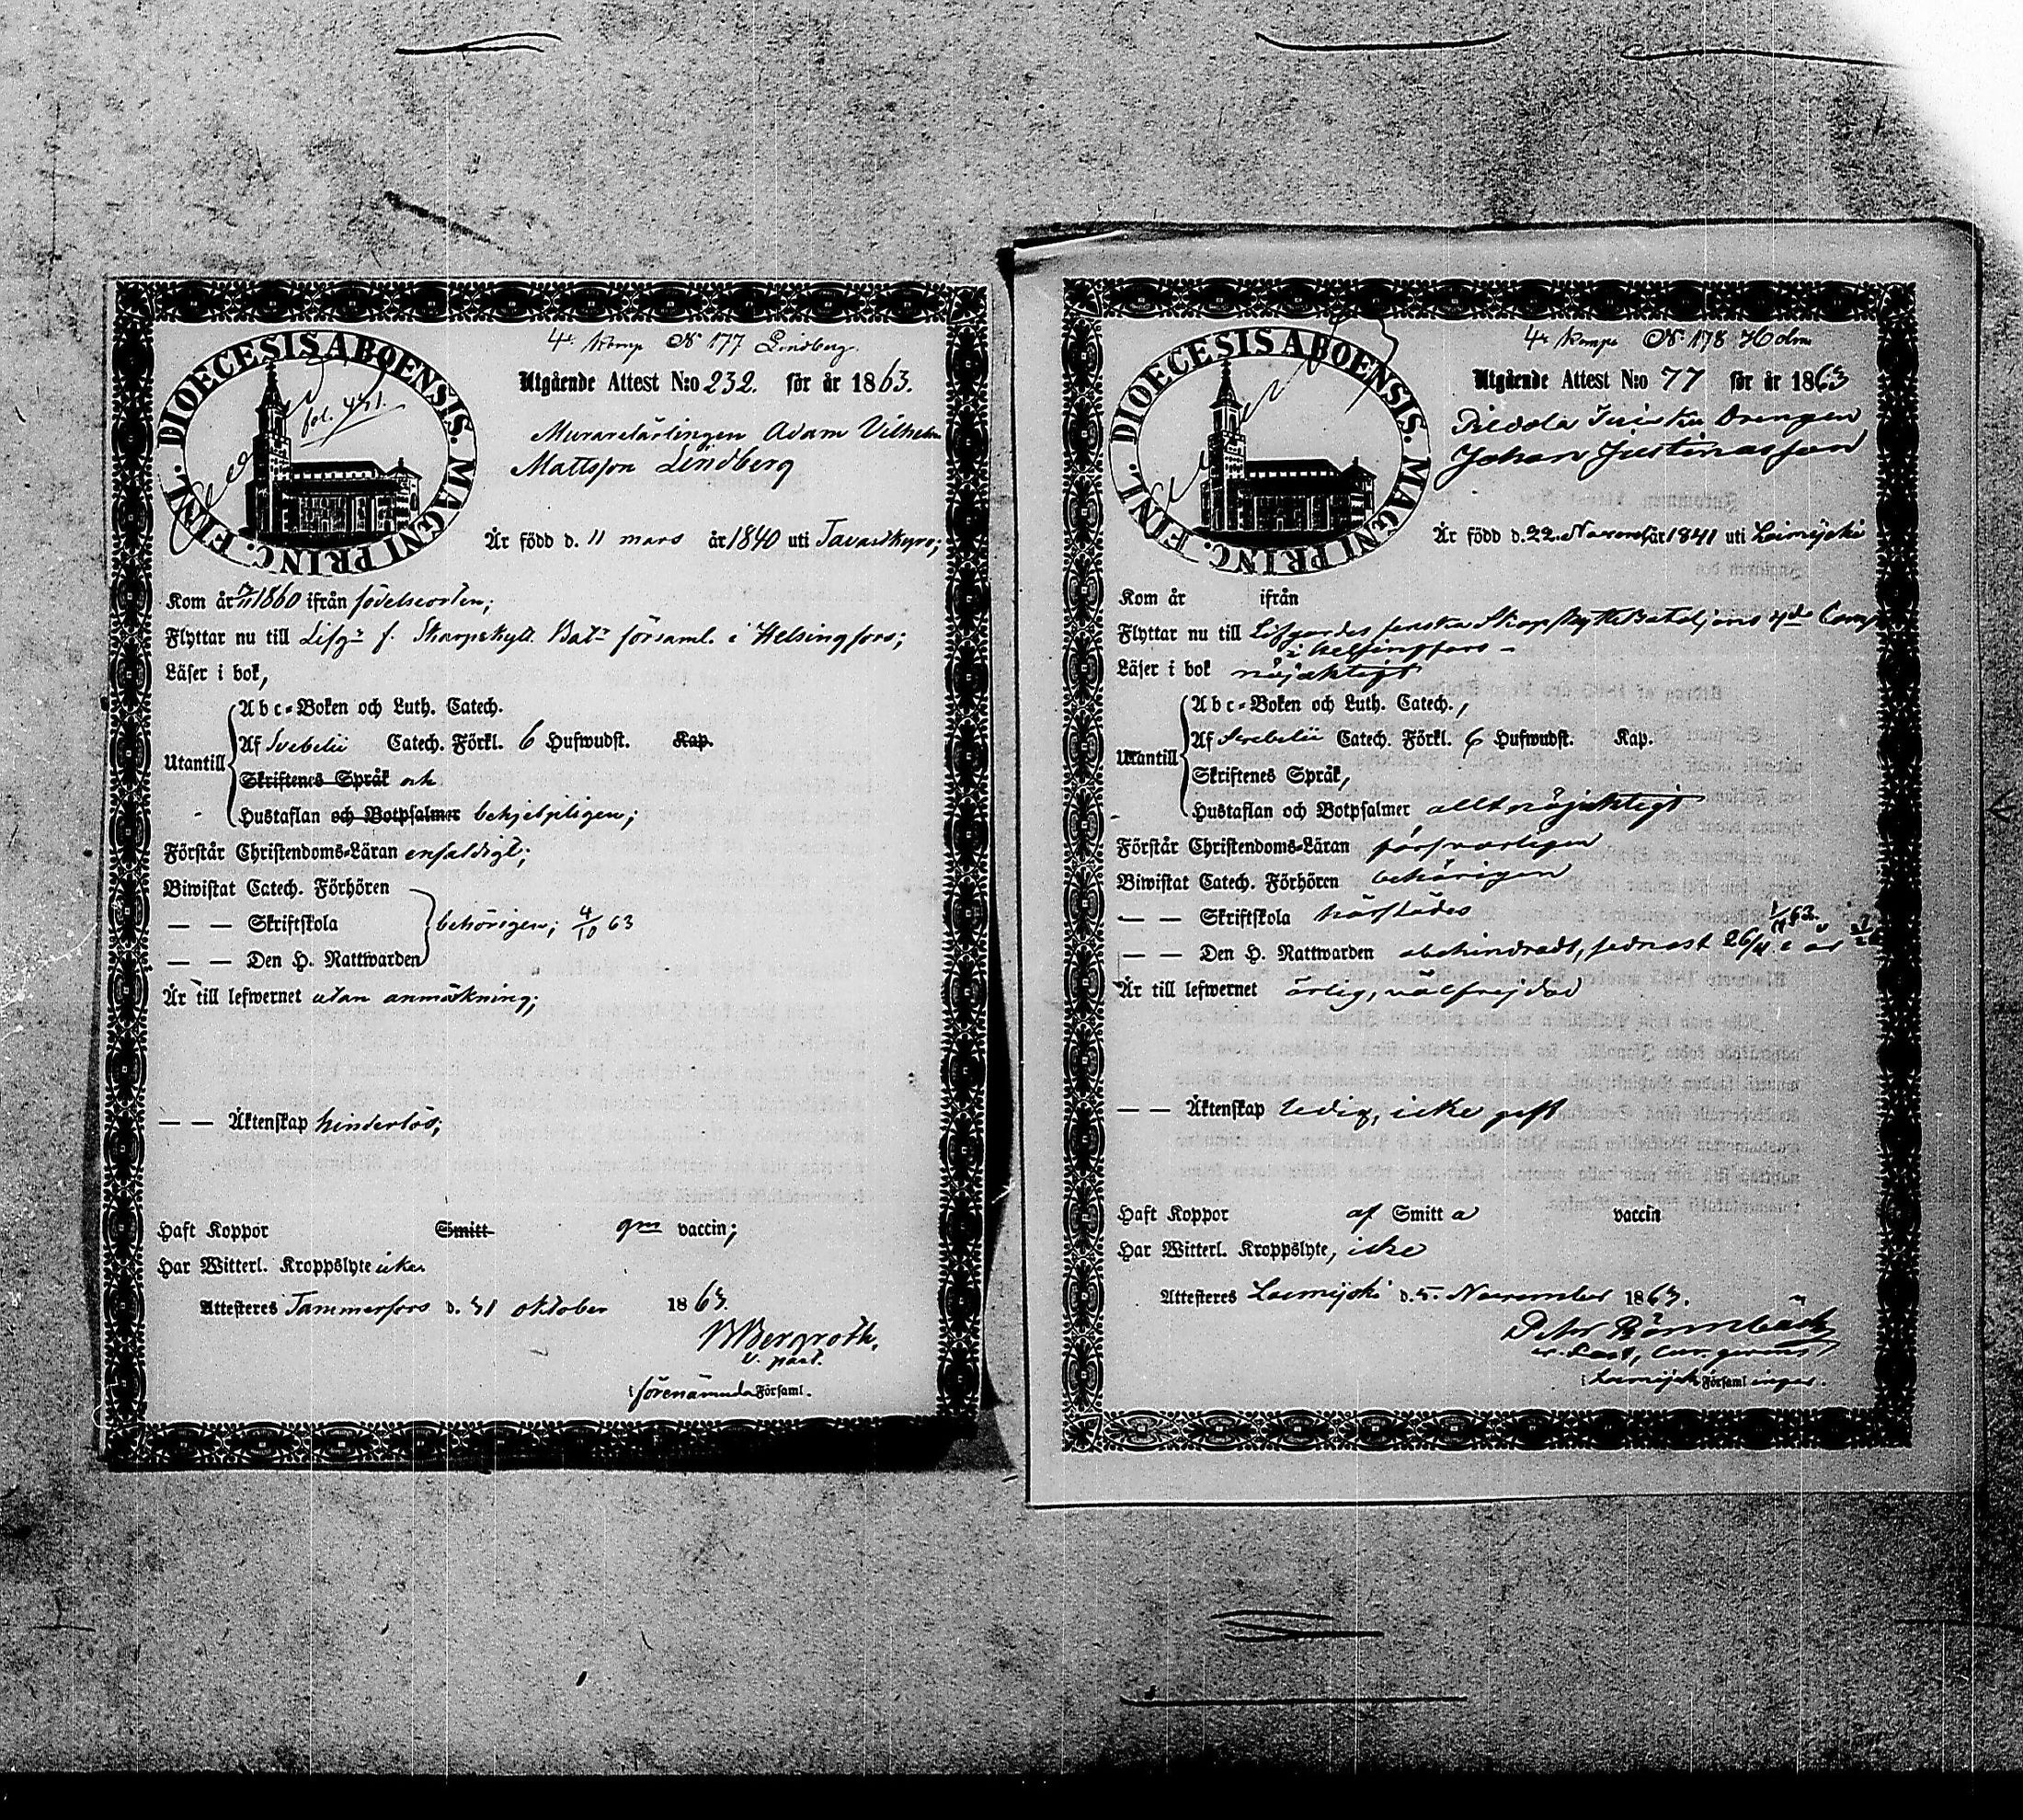 4e Komp N 177 Lindberg.
DIOECESIS ABOENSIS. MAGNI PRINC. FINL.
fol. 441.
Utgående Attest N:o 232. för år 1863.
Murarelärlingen Adam Vilhelm
Mattsson Lindberg
Är född d. 11 mars år 1840 uti Tavastkyro;
Kom år 1860 ifrån födelseorten;
Flyttar nu till Lifg. f. Skarpskytt. Bat. församl. i Helsingfors;
Läser i bok,
Utantill
Abc-Boken och Luth. Catech.
Af Svebelii Catech. Förkl. 6 Hufwudst. Kap.
Skriftenes Språk och
Hustaflan och Botpsalmer behjelpligen;
Förstår Christendoms-Läran enfaldigt;
Biwistat Catech. Förhören
— — Skriftskola behörigen; 4/10 63
— — Den H. Nattwarden
Är till lefwernet utan anmärkning;
— — Äktenskap hinderlös;
Haft Koppor Smitt gm vaccin;
Har Witterl. Kroppslyte icke.
Attesteres Tammerfors d. 31 oktober 1863.
Bergroth.
v. past.
i förenämnda Församl.
4e Komp N 178 Holm
DIOECESIS ABOENSIS. MAGNI PRINC. FINL.
Utgående Attest N:o 77 för år 1863
Drengen
Johan Justinasson
Är född d. 22. November år 1841 uti Loimijoki
Kom år ifrån
Flyttar nu till Lifgardes finska Skarpskytte Bataljons 4de Comp
i Helsingfors –
Läser i bok nöjaktigt
Utantill
Abc-Boken och Luth. Catech.,
Af Svebelii Catech. Förkl. 6 Hufwudst. Kap.
Skriftenes Språk,
Hustaflan och Botpsalmer allt nöjaktigt
Förstår Christendoms-Läran försvarligen
Biwistat Catech. Förhören behörigen
— — Skriftskola härstädes
— — Den H. Nattwarden obehindradt, sednast 26/4 i år
Är till lefwernet ärlig, välfrejdad
— — Äktenskap ledig, icke gift
Haft Koppor af Smitt a vaccin
Har Witterl. Kroppslyte, icke
Attesteres Loimijoki d. 5. November 1863.
i Loimijoki Församlingar.